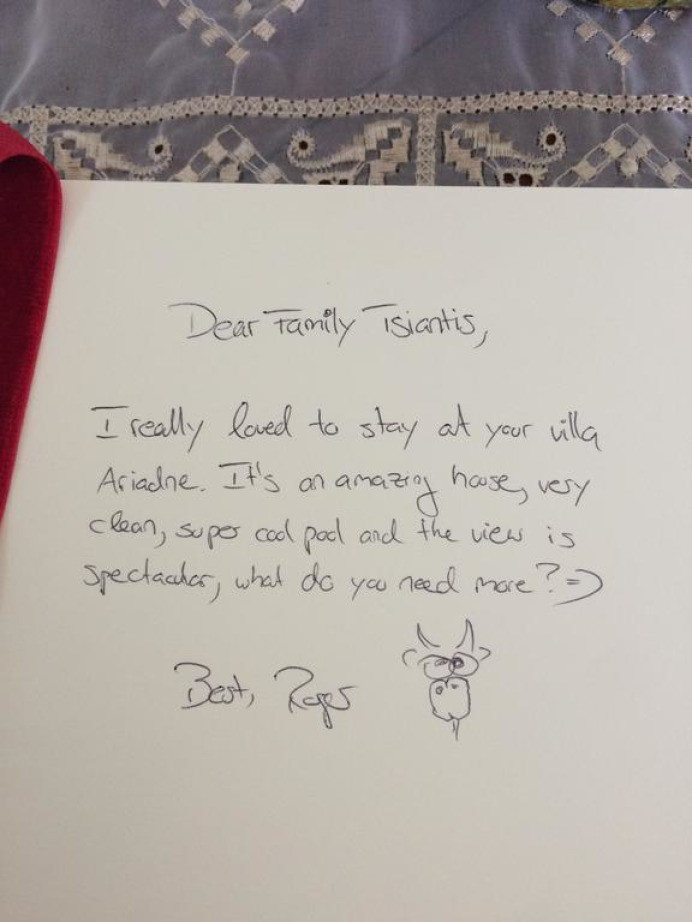 Dear Family Tsiantis,
I really loved to stay at your villa
Ariadne. It's an amazing house, very
clean, super cool pool and the view is
spectacular, what do you need more? =)
Best, Roger